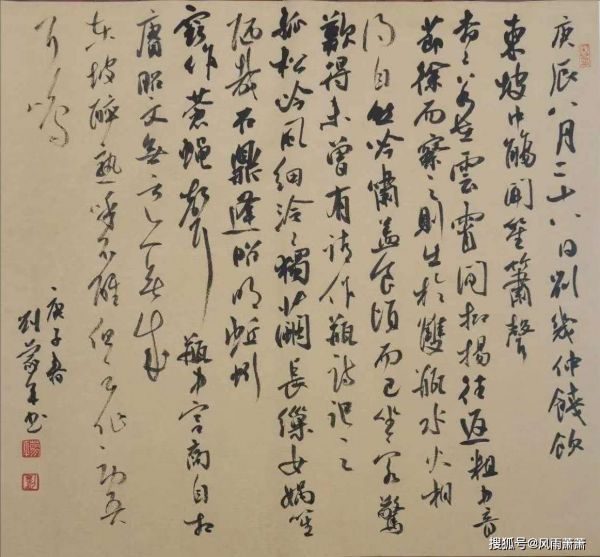 庚辰八月二十八日刘幾仲餞飲
東坡中觴聞笙簫聲
杳々若在雲霄间抑揚往返粗中音
節徐而察之則出於雙瓶水火相
得自然吟嘯盖食頃而已坐客驚
歎得未曾有請作瓶詩記之
孤松吟風細泠々獨繭長繰女媧笙
陋哉石鼎逢彌明蚯蚓
竅作蒼蠅聲 瓶中宫商自相
賡昭文無亏亦無成
東坡醉熟呼不醒但云作勞吾
耳鳴
庚子春
刘 书
搜狐号@风雨萧萧